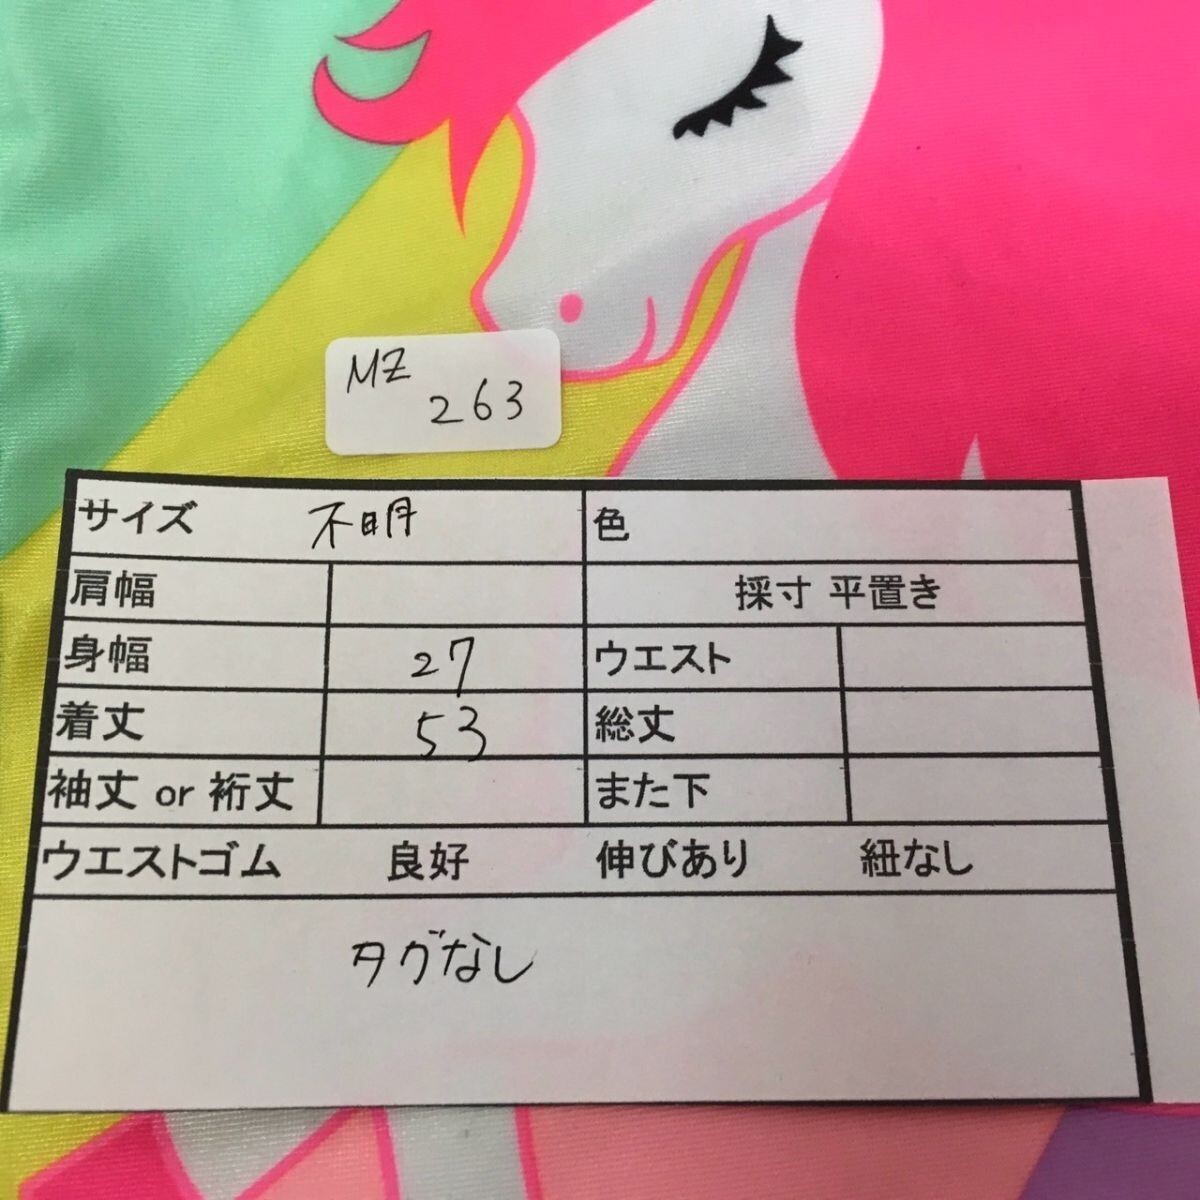 MZ
263
サイズ 不明 色
肩幅 採寸 平置き
身幅 27 ウエスト
着丈 53 総丈
袖丈 or 裄丈 また下
ウエストゴム 良好 伸びあり 紐なし
タグなし